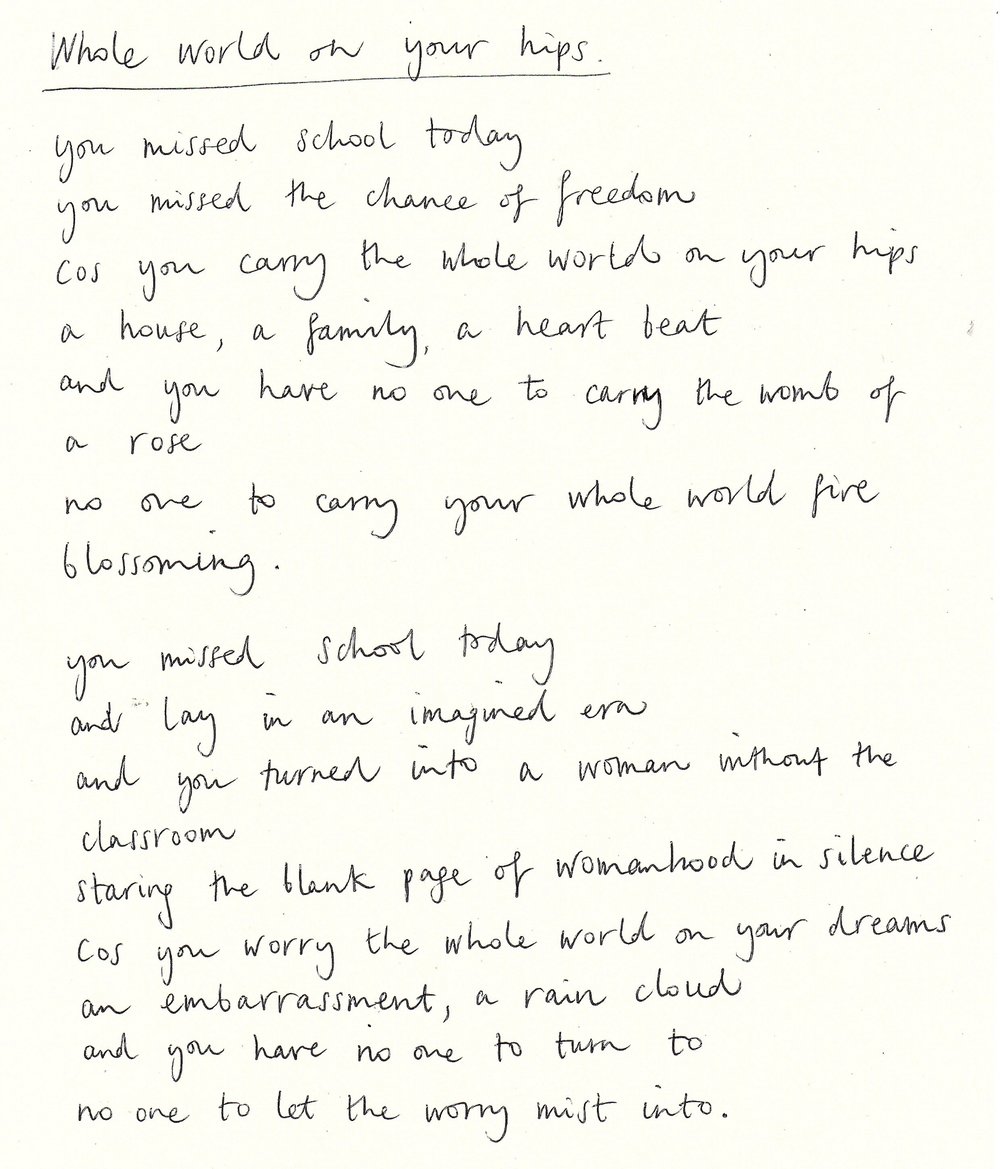 Whole world on your hips.
you missed school today
you missed the chance of freedom
cos you carry the whole world on your hips
a house, a family, a heart beat
and you have no one to carry the womb of
a rose
no one to carry your whole world fire
blossoming.
you missed school today
and lay in an imagined era
and you turned into a woman without the
classroom
staring the blank page of womanhood in silence
cos you worry the whole world on your dreams
an embarrassment, a rain cloud
and you have no one to turn to
no one to let the worry mist into.